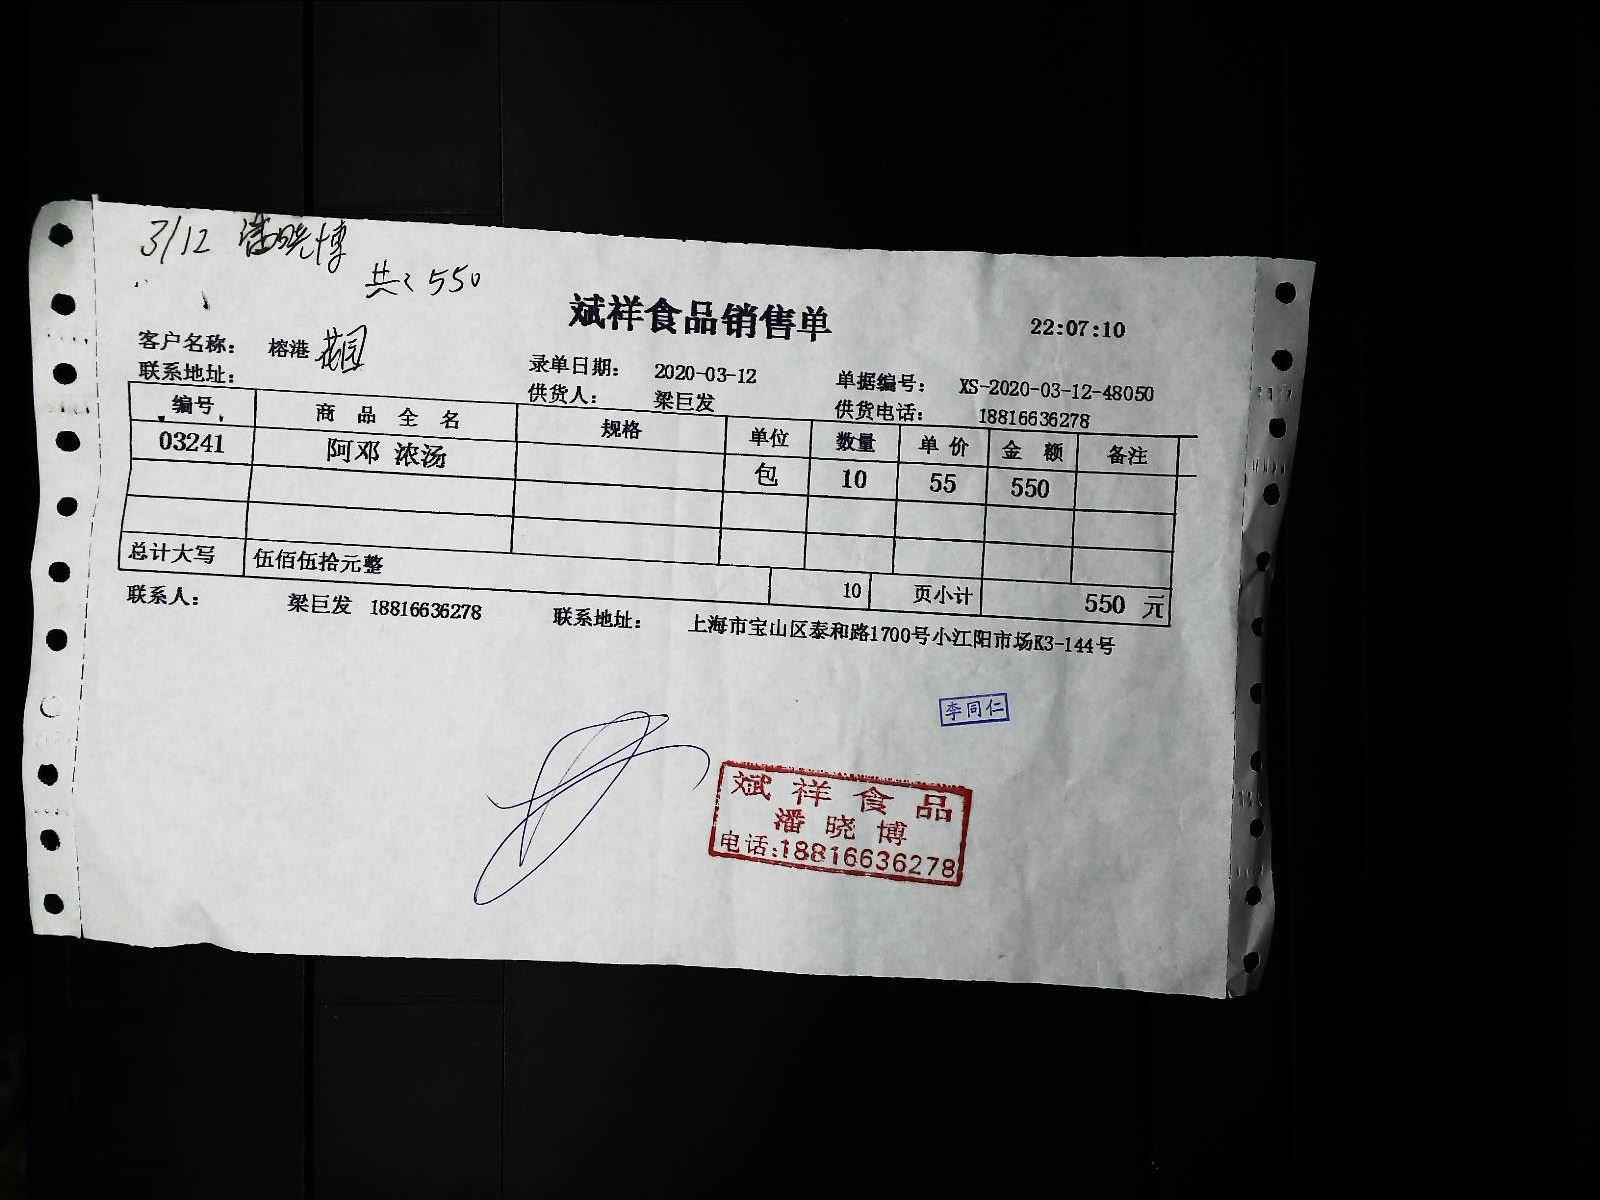 3/12 潘晓博
共: 550
斌祥食品销售单
22:07:10
客户名称： 榕港 花园
录单日期： 2020-03-12 单据编号： XS-2020-03-12-48050
联系地址：
供货人： 梁巨发 供货电话： 18816636278
编号 商品全名 规格 单位 数量 单价 金额 备注
03241 阿邓 浓汤 包 10 55 550
总计大写 伍佰伍拾元整 10 页小计 550 元
联系人： 梁巨发 18816636278 联系地址： 上海市宝山区泰和路1700号小江阳市场K3-144号
李同仁
斌祥食品
潘晓博
电话:18816636278